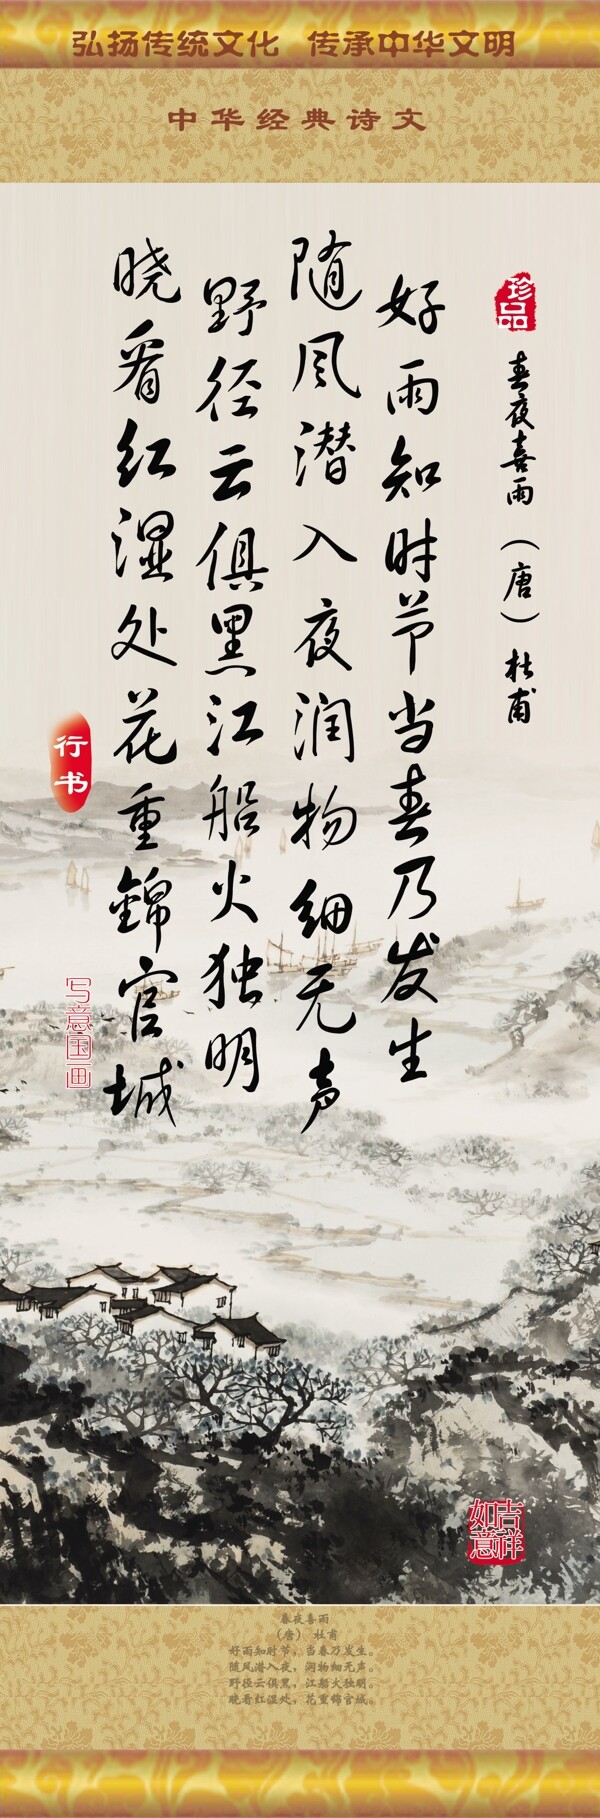 弘扬传统文化 传承中华文明
中华经典诗文
珍品
春夜喜雨（唐）杜甫
好雨知时节当春乃发生
随风潜入夜润物细无声
野径云俱黑江船火独明
晓看红湿处花重錦官城
行书
写意国画
吉祥如意
春夜喜雨
（唐） 杜甫
好雨知时节，当春乃发生。
随风潜入夜，润物细无声。
野径云俱黑，江船火独明。
晓看红湿处，花重锦官城。